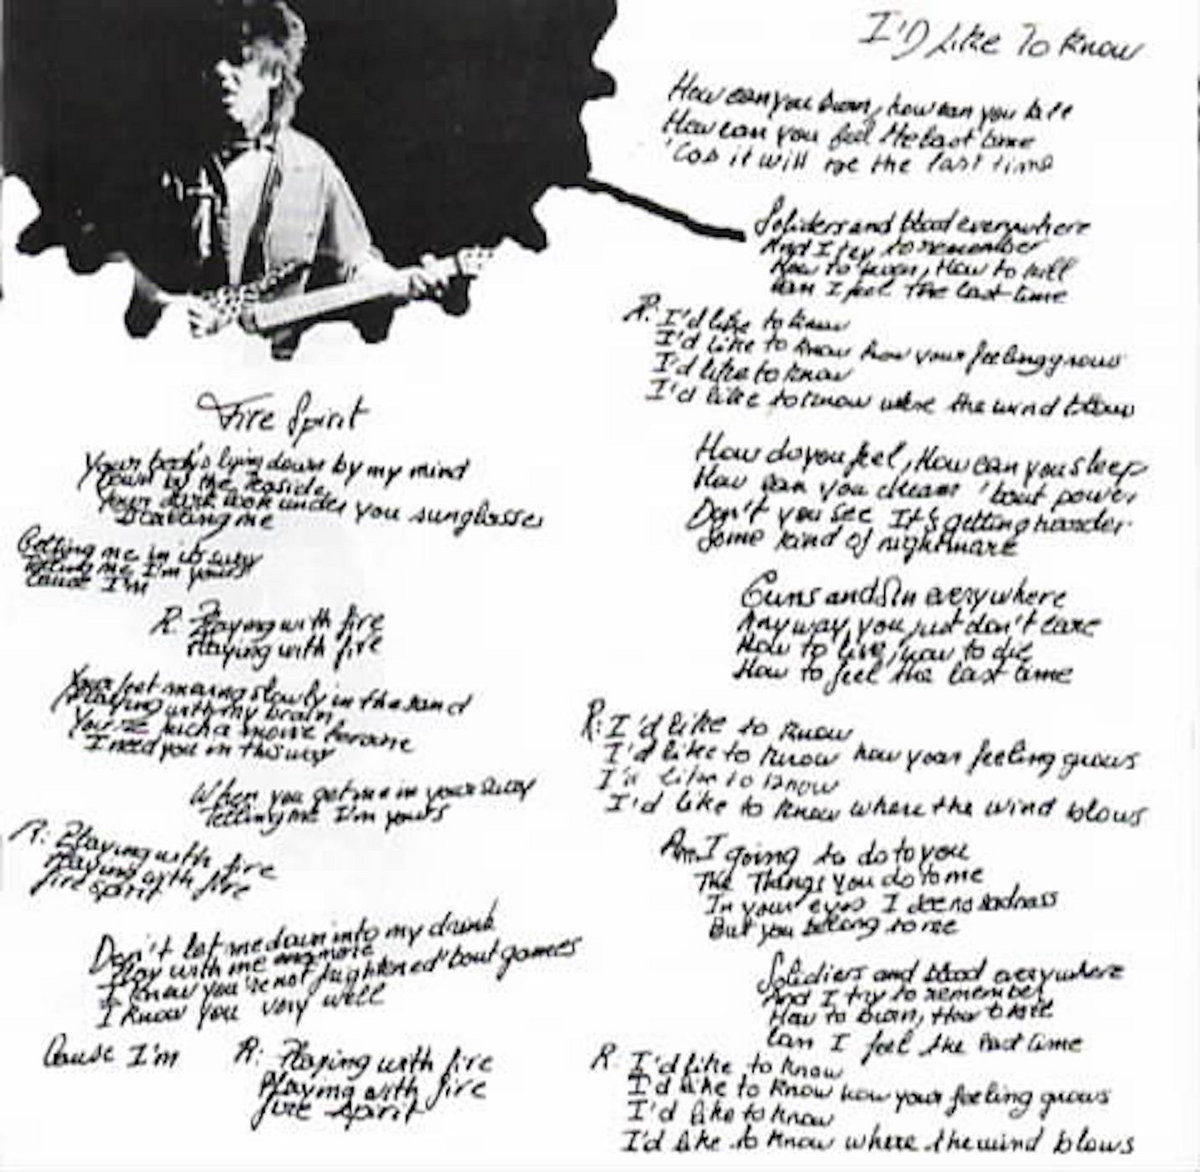 Fire Spirit
Your body's lying down by my mind
Down by the seaside
Your dark look under you sunglasses
Starting me
Getting me in its sway
Telling me I'm yours
Cause I'm
R: Playing with fire
Playing with fire
Your feet moving slowly in the sand
Playing with my brain
You're such a movie heroine
I need you in this way
When you get me in your sway
Telling me I'm yours
R: Playing with fire
Playing with fire
fire spirit
Don't let me down into my drink
Play with me anymore
I know you're not frightened 'bout games
I know you very well
Cause I'm
R: Playing with fire
Playing with fire
fire spirit
I'D Like To Know
How can you burn, how can you kill
How can you feel the last time
'Cos it will me the last time
Soliders and blood everywhere
And I try to remember
How to burn, How to kill
Can I feel the last time
R: I'd like to know
I'd like to know how your feeling grows
I'd like to know
I'd like to know where the wind blows
How do you feel, How can you sleep
How can you dream 'bout power
Don't you see It's getting harder
Some kind of nightmare
Guns and Sin everywhere
Anyway, you just don't care
How to live, how to die
How to feel the last time
R: I'd like to know
I'd like to know how your feeling grows
I'd like to know
I'd like to know where the wind blows
Am I going to do to you
The Things you do to me
In your eyes I see no sadness
But you belong to me
Soldiers and blood everywhere
And I try to remember
How to burn, How to kill
Can I feel the last time
R. I'd like to know
I'd like to know how your feeling grows
I'd like to know
I'd like to know where the wind blows